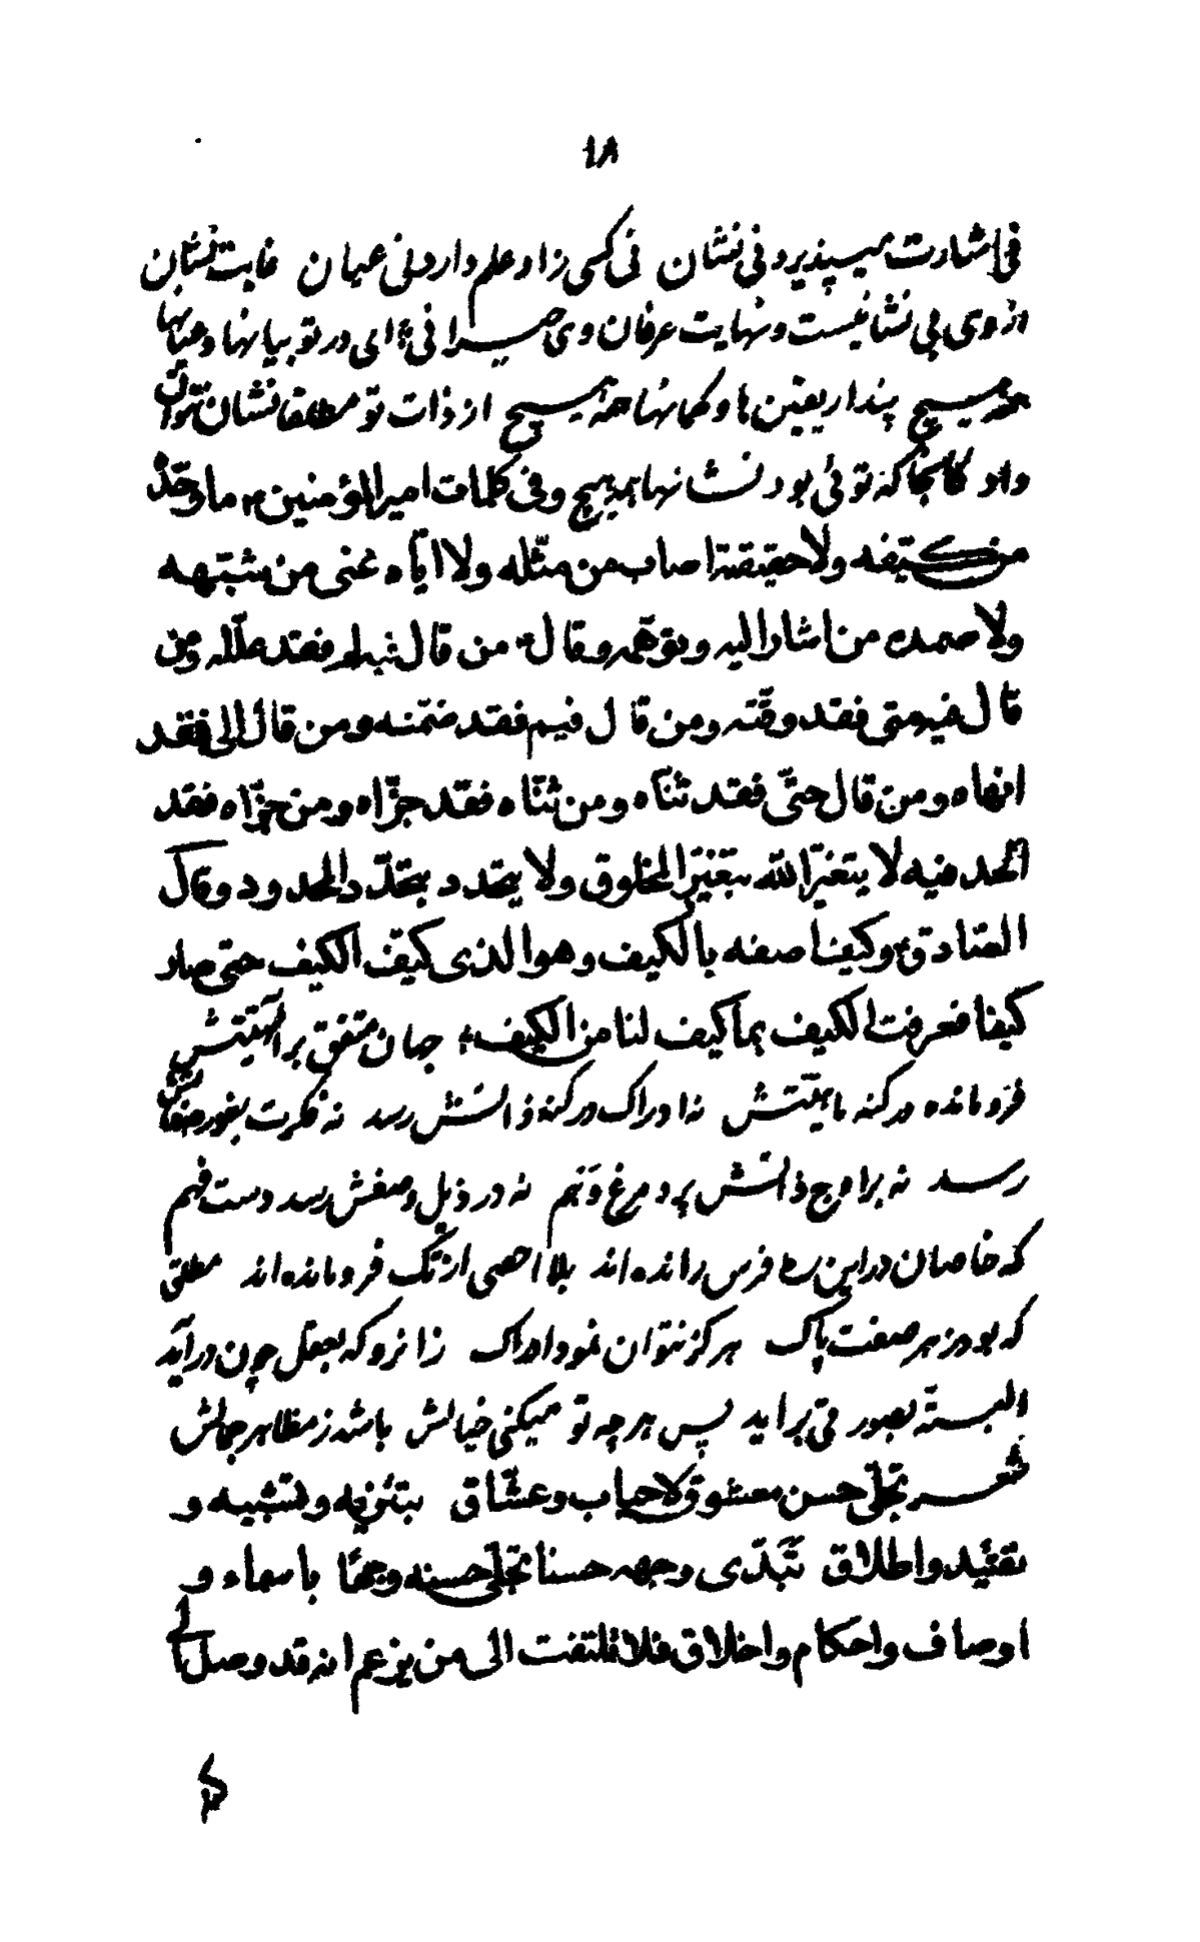 ١٨
نی اشارت میپذیرد نی نشان نی کسی زاو علم دارد نی عیان غایت نشان
از وی بی نشانیست و نهایت عرفان وی حیرانی ای در تو بیانها و عیانها
همه هیچ پندار یقین ها و گمانها همه هیچ از ذات تو مطلقا نشان نتوان
داد کانجا که توئی بود نشانها همه هیچ وفی کلمات امیرالمؤمنین ما وحّده
من کیّفه ولا حقیقته اصاب من مثّله ولا ایّاه عنی من شبّهه
ولا صمده من اشار الیه وتوهّمه وقال من قال فیم فقد علّله ومن
قال متی فقد وقّته ومن قال فیم فقد ضمّنه ومن قال الی فقد
انهاه ومن قال حتّی فقد ثنّاه ومن ثنّاه فقد جزّاه ومن جزّاه فقد
الحد فیه لا یتغیّر الله بتغیّر المخلوق ولا یتحدد بتحدّد المحدود وقال
الصّادق وکیف اصفه بالکیف وهو الذی کیّف الکیف حتی صار
کیفا فعرفت الکیف بما کیف لنا من الکیف جهان متفق بر الهیتش
فرومانده در کنه ماهیّتش نه ادراک در کنه ذاتش رسد نه فکرت بغور صفاتش
رسد نه بر اوج ذاتش پرد مرغ وهم نه در ذیل وصفش رسد دست فهم
که خاصان در این ره فرس رانده اند بلا احصی از تک فرومانده اند مطلق
که بود ز هر صفت پاک هرگز نتوان نمود ادراک زانرو که بعقل چون درآید
البته بصورتی برآید پس هرچه تو میکنی خیالش باشد ز مظاهر جمالش
شعر تجلّی حسن معشوق لاحباب وعشّاق بتنزیه وتشبیه و
تقیید واطلاق تبدّی وجهه حسنا تجلّی حسنه وجها باسماء و
اوصاف واحکام واخلاق فلا تلتفت الی من یزعم انه قد وصل الی